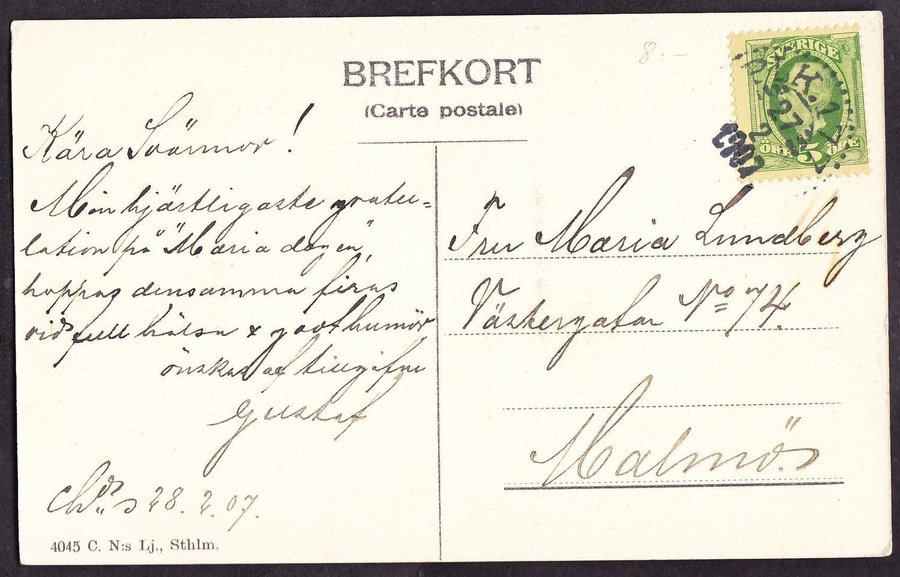 BREFKORT
(Carte postale)
SVERIGE
5
ÖRE
1907
Kära Svärmor!
Min hjärtligaste gratu=
lation på "Maria dagen"
hoppas densamma firas
vid full hälsa & godt humör
önskas af tillgifne
Gustaf
28.2.07.
4045 C. N:s Lj., Sthlm.
Fru Maria Lundberg
Västergatan No 74.
Malmö